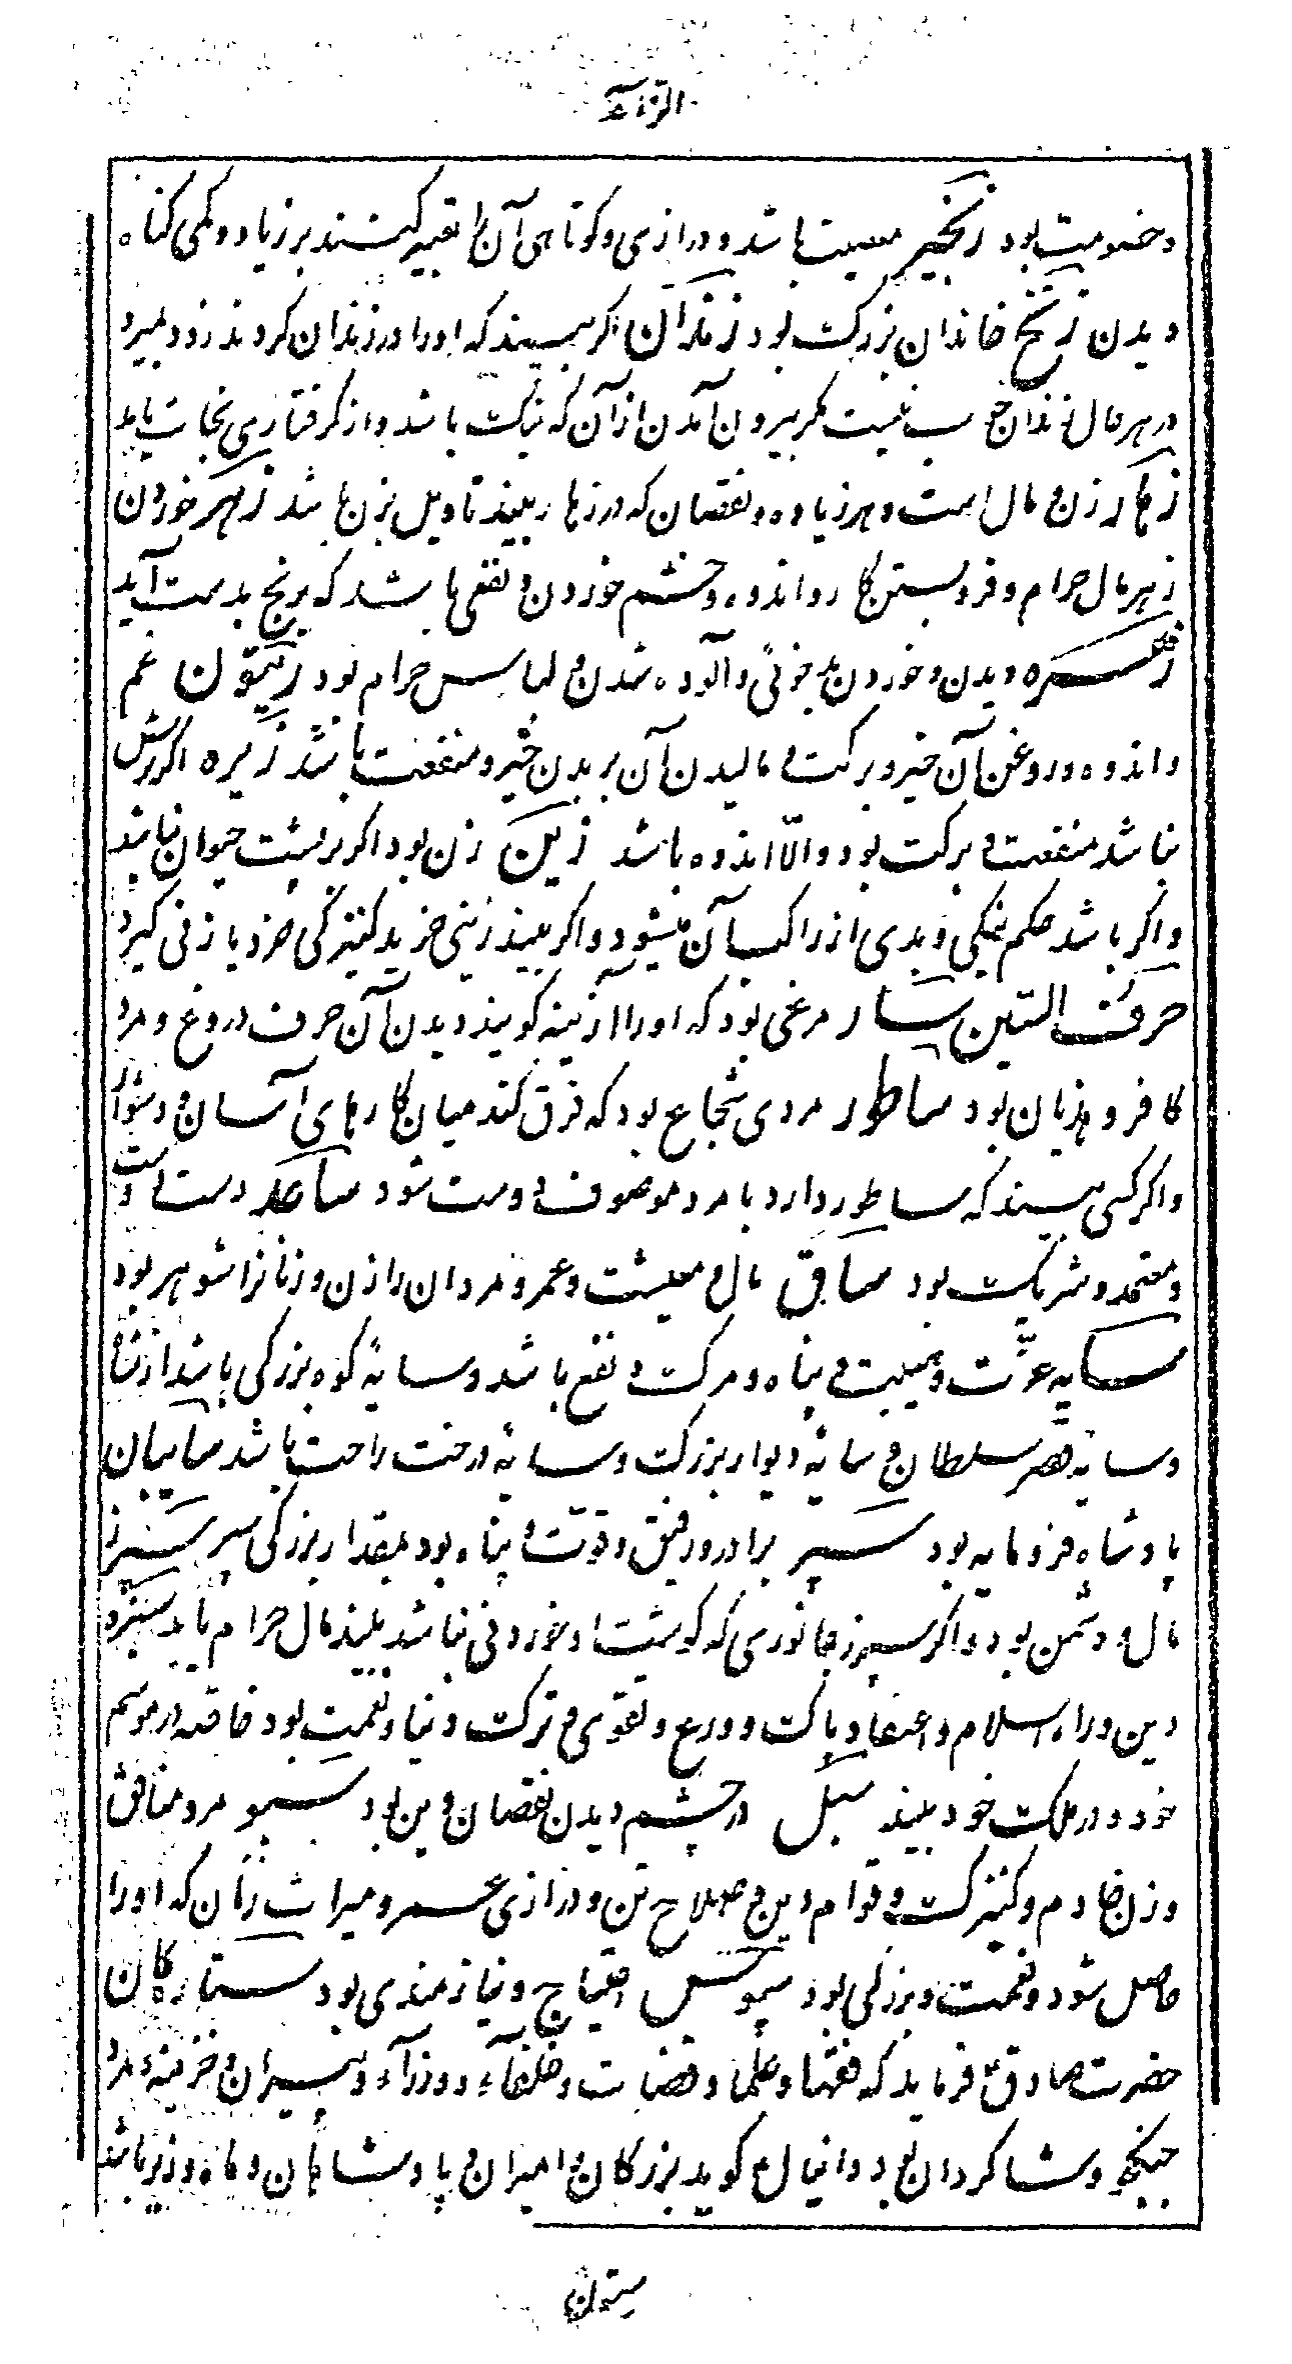 و خصومت بود زنجیر معصیت باشد و درازی و کوتاهی آن را تعبیر کنند بر زیاد و کمی کناه
دیدن زرنیخ خاندان بزرک بود زندان اکر بیند که او را در زندان کردند زود بمیرد
در هر حال زندان خوب نیست مکر بیرون آمدن از آن که نیک باشد و از کرفتاری نجات یابد
زهار زن و مال است و هر زیاده و نقصان که در زهار بیند تاویل بزن باشد زهر خوردن
زهر مال حرام و فرو بستن کار و اندوه و خشم خوردن و نفعی باشد که برنج بدست آید
دیدن و خوردن بدخوئی و آلوده شدن لباس حرام بود زیتون غم
و اندوه و روغن آن خیر و برکت و مالیدن آن بر بدن خیر و منفعت باشد زیره اکر زرش
نباشد منفعت و برکت بود و الّا اندوه باشد زین زن بود اکر بر پشت حیوان نباشد
و اکر باشد حکم نیکی و بدی از راکب آن میشود و اکر بیند زینی خرید کنیزکی خرد یا زنی کیرد
حرف السّین سار مرغی بود که او را آزینه کویند دیدن آن حرف دروغ و مرد
کافر و هذیان بود ساطور مردی شجاع بود که فرق کند میان کارهای آسان و دشوار
و اکر کسی بیند که ساطور دارد با مرد موصوف دوست شود ساعد دست و دوست
و معتمد و شریک بود ساق مال و معیشت و عمر و مردان را زن و زنانرا شوهر بود
سایه عزّت و هیبت و پناه و مرکب و نفع باشد و سایهٔ کوه بزرکی باشد از شاه
و سایهٔ قصر سلطان و سایهٔ دیوار بزرک و سایهٔ درخت راحت باشد سایبان
پادشاه فرومایه بود سپر برادر و رفیق و قوّت و پناه بود بمقدار بزرکی سپر سپرز
مال و دشمن بود و اکر سپرز جانوری که کوشت او خوردنی نباشد بیند مال حرام یابد سبزه
دین و راه اسلام و اعتقاد پاک و ورع و تقوی و ترک دنیا و نعمت بود خاصه در موسم
خود و در ملک خود بیند سبل در چشم دیدن نقصان دین بود سبو مرد منافق
و زن خادم و کنیزک و قوام دین و صلاح تن و درازی عمر و میراث زنان که او را
حاصل شود و نعمت و بزرکی بود سبوس احتیاج و نیازمندی بود ستارکان
حضرت صادق ع فرماید که فقها و علما و قضات و خلفاء و وزراء و دبیران و خزینه و مرد
جنکجو و شاکردان بود و دانیال ع کوید بزرکان و امیران و پادشاهان و ماه وزیر باشد
ستون